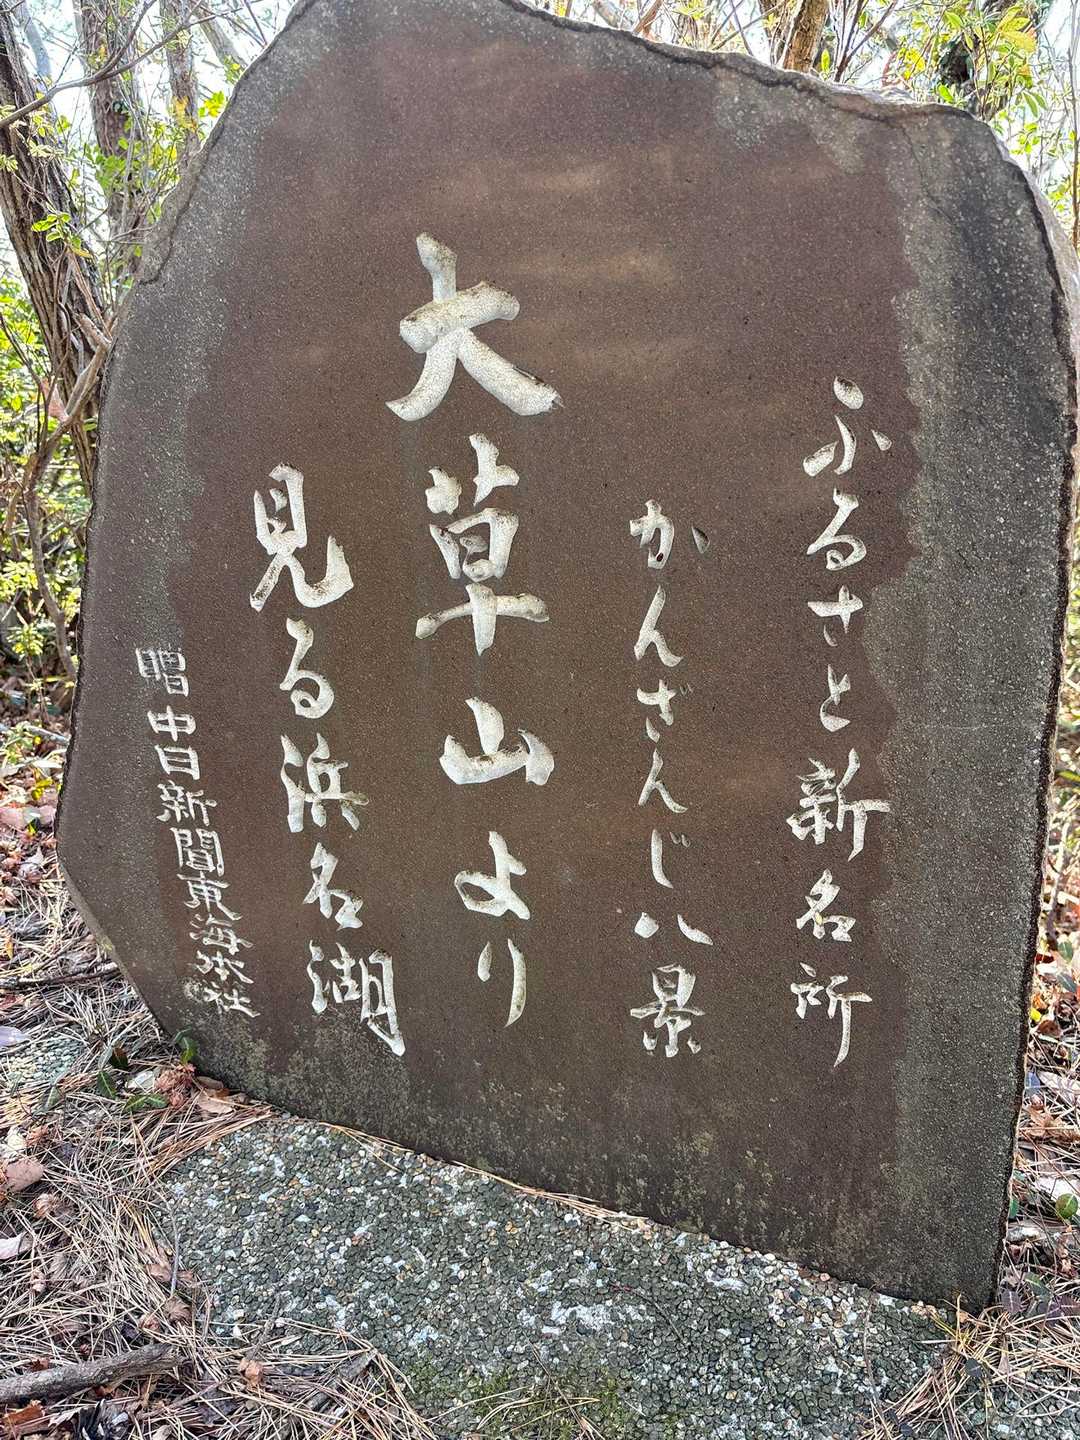 ふるさと新名所
かんざんじ八景
大草山より
見る浜名湖
贈 中日新聞東海本社